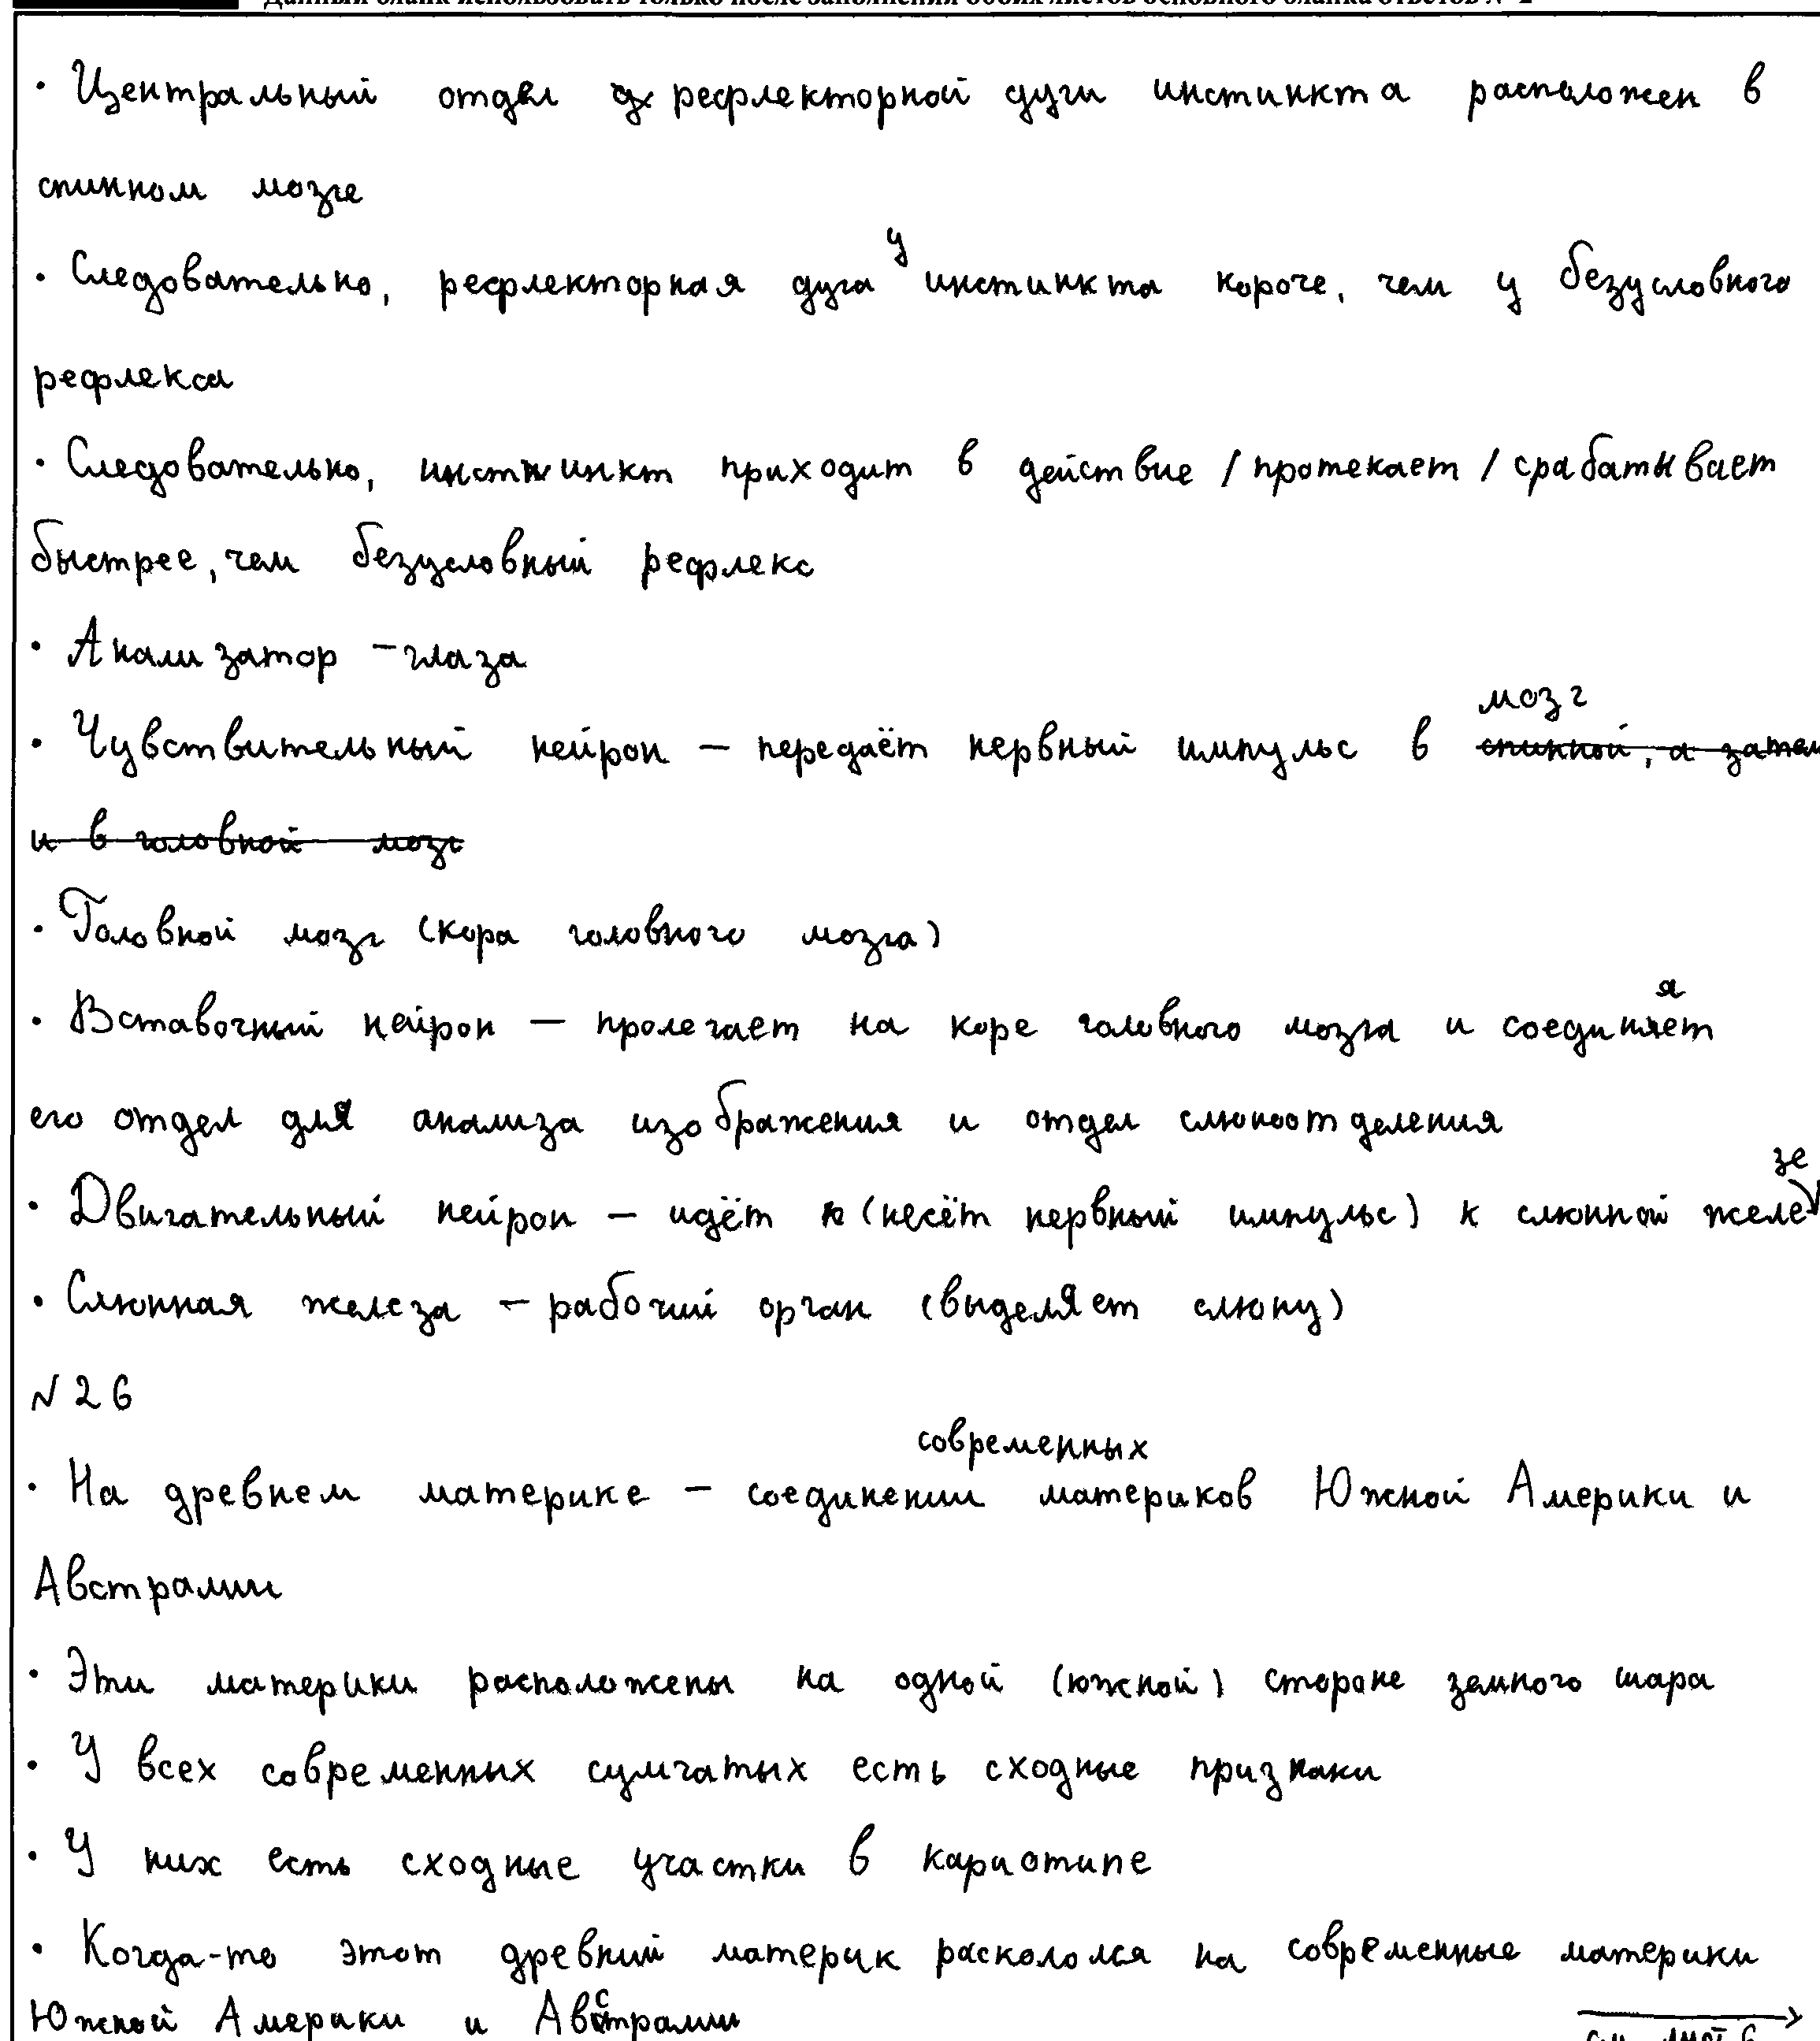 Данный бланк использовать только после заполнения обоих листов основного бланка ответов № 2
· Центральный отдел рефлекторной дуги инстинкта расположен в
спинном мозге
· Следовательно, рефлекторная дуга у инстинкта короче, чем у безусловного
рефлекса
· Следовательно, инстинкт приходит в действие / протекает / срабатывает
быстрее, чем безусловный рефлекс
· Анализатор – глаза
мозг
· Чувствительный нейрон – передаёт нервный импульс в спинной, а затем
и в головной мозг
· Головной мозг (кора головного мозга)
· Вставочный нейрон – пролегает на коре головного мозга и соединяет
его отдел для анализа изображения и отдел слюноотделения
· Двигательный нейрон – идёт к (несёт нервный импульс) к слюнной железе
· Слюнная железа – рабочий орган (выделяет слюну)
№ 26
современных
· На древнем материке – соединении материков Южной Америки и
Австралии
· Эти материки расположены на одной (южной) стороне земного шара
· У всех современных сумчатых есть сходные признаки
· У них есть сходные участки в кариотипе
· Когда-то этот древний материк раскололся на современные материки
Южной Америки и Австралии
см. лист 6